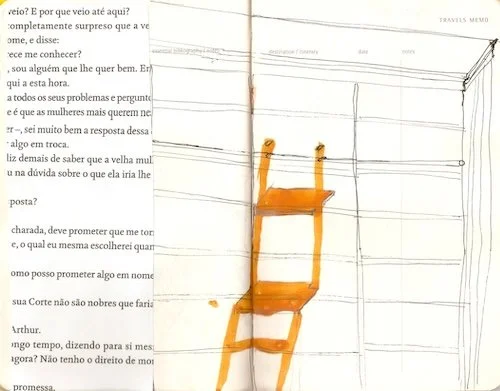 TRAVELS MEMO
destination / itinerary date notes
veio? E por que veio até aqui?
ompletamente surpreso que a ve
ome, e disse:
rece me conhecer?
, sou alguém que lhe quer bem. En
qui a esta hora.
a todos os seus problemas e pergunto
e é que as mulheres mais querem ne
er –, sei muito bem a resposta dessa
r algo em troca.
liz demais de saber que a velha mul
u na dúvida sobre o que ela iria lhe
posta?
charada, deve prometer que me torn
e, o qual eu mesma escolherei quan
omo posso prometer algo em nome
sua Corte não são nobres que faria
Arthur.
ongo tempo, dizendo para si mes
agora? Não tenho o direito de mor
promessa.